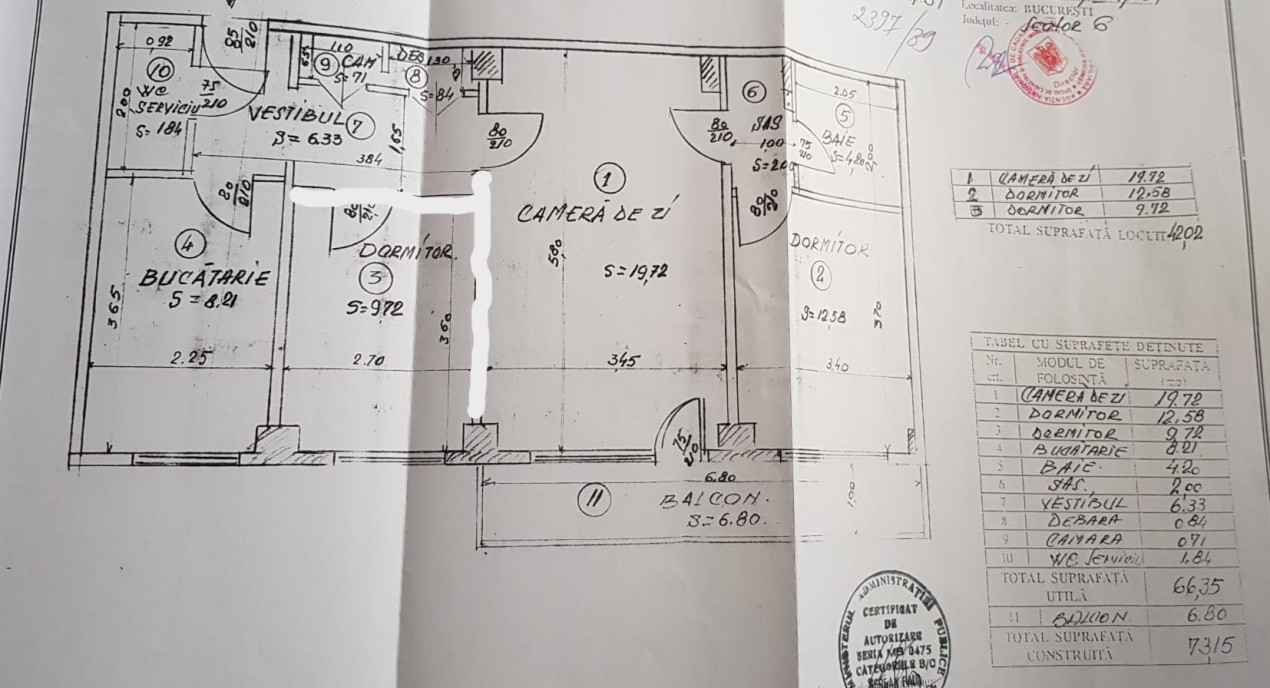 Localitatea: BUCUREȘTI
Județul: Sector 6
2397/39
0.92
95/210
10
WC
SERVICIU
S=1.84
200
75/210
110
9 CAM
S=71
DEB
130
8
S=84
VESTIBUL 7
S=6.33
384
1,65
80/210
80/210
80/210
1
CAMERĂ DE ZI
S=19,72
580
345
6
SAS
100
S=2.00
80/210
75/210
80/210
2.05
5
BAIE
S=4.20
4
BUCĂTARIE
S=8.21
365
2.25
DORMITOR.
3
S=9.72
360
2.70
DORMITOR
2
S=12.58
370
3,40
75/210
6.80
11
BALCON.
S=6.80.
1,00
1 CAMERĂ DE ZI 19.72
2 DORMITOR 12.58
3 DORMITOR 9.72
TOTAL SUPRAFAȚĂ LOCUIT 42,02
TABEL CU SUPRAFEȚE DEȚINUTE
Nr. crt. MODUL DE FOLOSINȚĂ SUPRAFAȚA (mp)
1 CAMERĂ DE ZI 19.72
2 DORMITOR 12,58
3 DORMITOR 9.72
4 BUCĂTARIE 8.21
5 BAIE. 4.20
6 SAS. 2,00
7 VESTIBUL 6.33
8 DEBARA 0.84
9 CAMARA 0.71
10 WC Serviciu 1.84
TOTAL SUPRAFAȚĂ UTILĂ 66,35
11 BALCON. 6.80
TOTAL SUPRAFAȚĂ CONSTRUITĂ 73,15
MINISTERUL ADMINISTRAȚIEI PUBLICE
CERTIFICAT
DE
AUTORIZARE
SERIA MB 0475
CATEGORIILE B/C